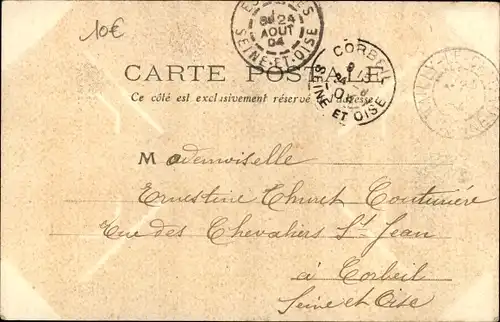 10€
8E 24
AOUT
04
SEINE-ET-OISE
CORBEIL
SEINE ET OISE
CARTE POSTALE
Ce côté est exclusivement réservé adresse
Mademoiselle
Ernestine Couturière
Rue des Chevaliers St Jean
à Corbeil
Seine et Oise